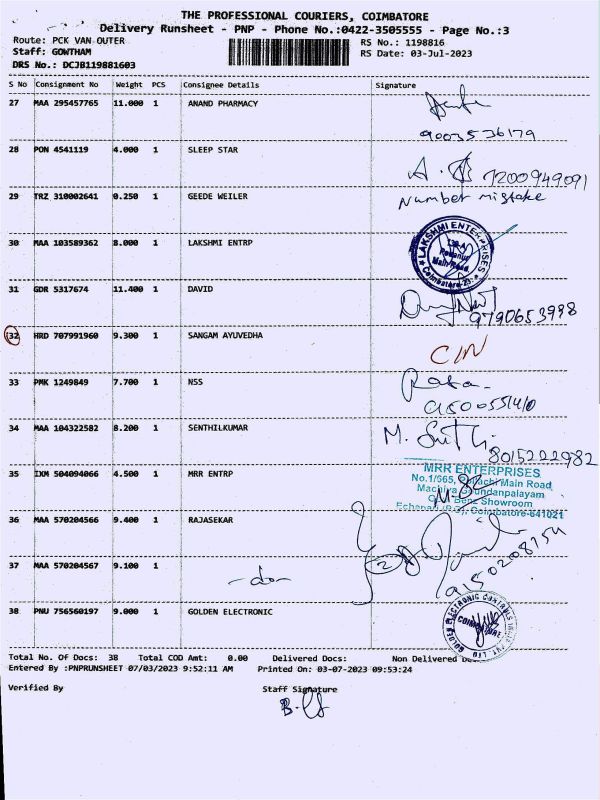 THE PROFESSIONAL COURIERS, COIMBATORE
Delivery Runsheet - PNP - Phone No.:0422-3505555 - Page No.:3
Route: PCK VAN OUTER RS No.: 1198816
Staff: GOWTHAM RS Date: 03-Jul-2023
DRS No.: DCJB119881603
S No Consignment No Weight PCS Consignee Details Signature
27 MAA 295457765 11.000 1 ANAND PHARMACY
9003536179
28 PON 4541119 4.000 1 SLEEP STAR
7200949091
29 TRZ 310002641 0.250 1 GEEDE WEILER Number mistake
30 MAA 103589362 8.000 1 LAKSHMI ENTRP
LAKSHMI ENTERPRISES
Main Road
Coimbatore-23
31 GDR 5317674 11.400 1 DAVID
9790653998
32 HRD 707991960 9.300 1 SANGAM AYUVEDHA
C/N
33 PMK 1249849 7.700 1 NSS
34 MAA 104322582 8.200 1 SENTHILKUMAR
8015222982
35 IXM 504094066 4.500 1 MRR ENTRP
MRR ENTERPRISES
No.1/565, Main Road
Benz Showroom
Coimbatore-641021
36 MAA 570204566 9.400 1 RAJASEKAR
9150208754
37 MAA 570204567 9.100 1 -do-
38 PNU 756560197 9.000 1 GOLDEN ELECTRONIC
COIMBATORE
Total No. Of Docs: 38 Total COD Amt: 0.00 Delivered Docs: Non Delivered
Entered By :PNPRUNSHEET 07/03/2023 9:52:11 AM Printed On: 03-07-2023 09:53:24
Verified By Staff Signature